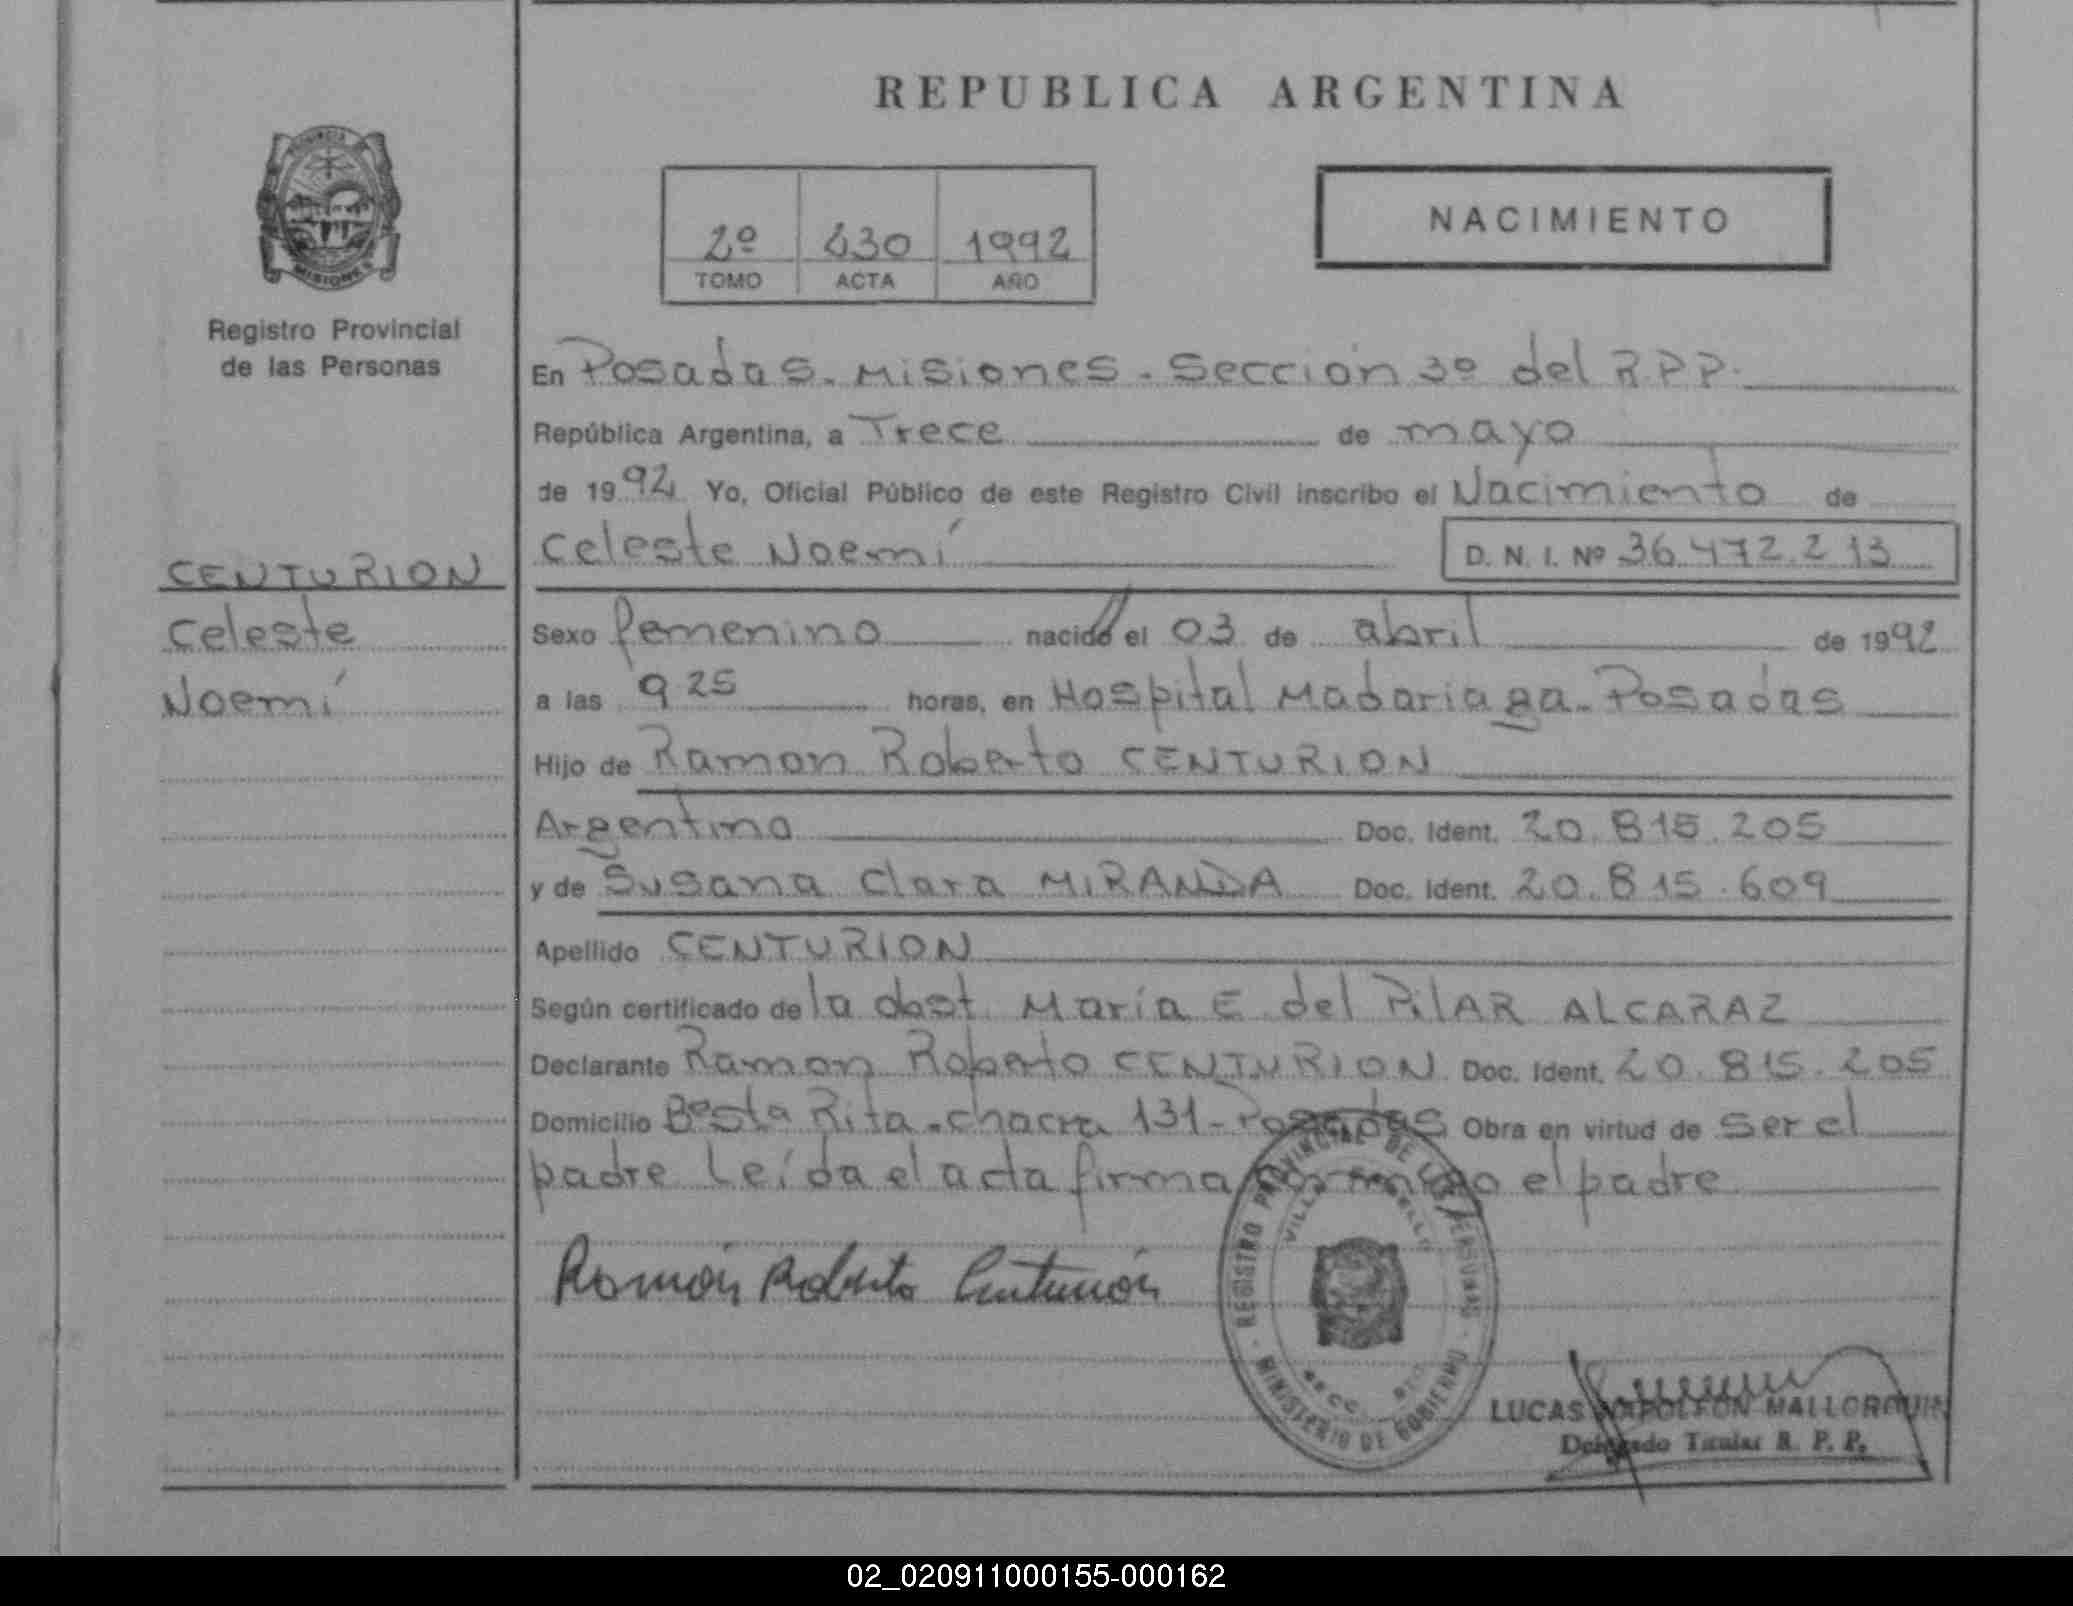 REPUBLICA ARGENTINA
PROVINCIA
MISIONES
Registro Provincial
de las Personas
2º 430 1992
TOMO ACTA AÑO
NACIMIENTO
En Posadas. Misiones. Sección 3º del R.P.P.
República Argentina, a Trece de mayo
de 1992 Yo, Oficial Público de este Registro Civil inscribo el Nacimiento de
Celeste Noemí D. N. I. Nº 36.472.213
CENTURION
Celeste
Noemí
Sexo femenino nacida el 03 de abril de 1992
a las 9 25 horas, en Hospital Madariaga. Posadas
Hijo de Ramon Roberto CENTURION
Argentino Doc. Ident. 20.815.205
y de Susana Clara MIRANDA Doc. Ident. 20.815.609
Apellido CENTURION
Según certificado de la obst. María E. del PilAR ALCARAZ
Declarante Ramon Roberto CENTURION Doc. Ident. 20.815.205
Domicilio Bº Sta Rita. chacra 131- Posadas Obra en virtud de ser el
padre Leída el acta firma conmigo el padre
Ramón Roberto Centurión
REGISTRO PROVINCIAL DE LAS PERSONAS
MINISTERIO DE GOBIERNO
LUCAS MALLORQUIN
Delegado Titular R. P. P.
02_020911000155-000162